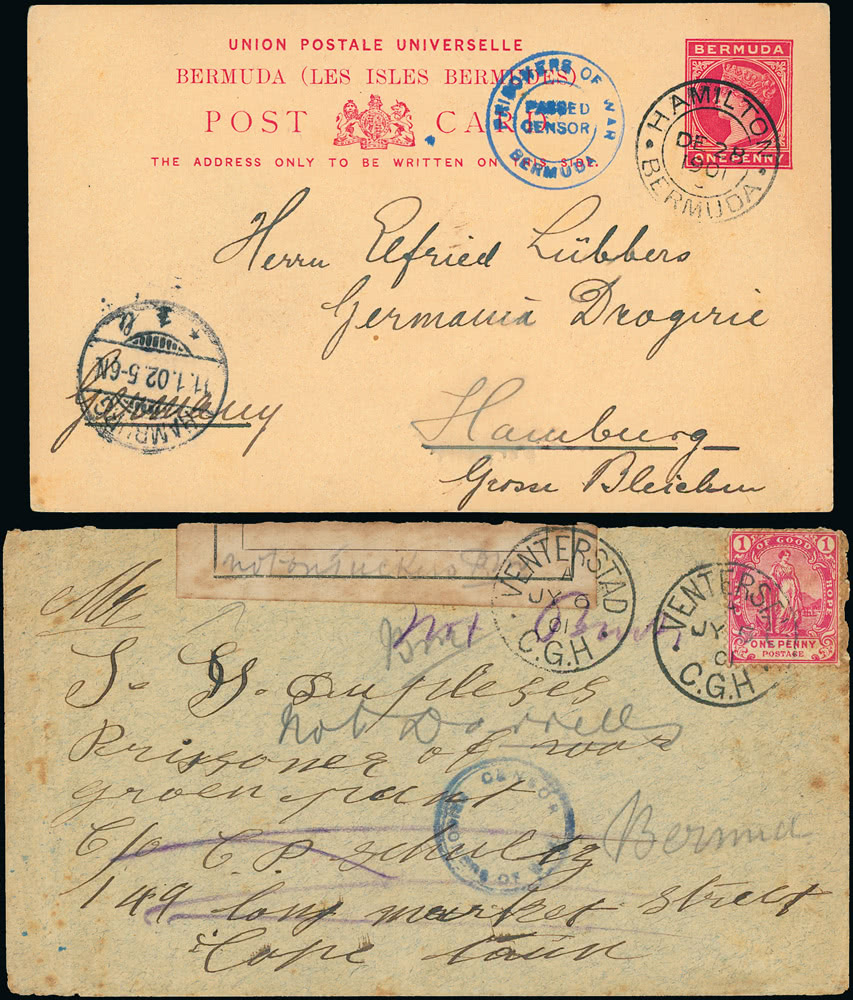 UNION POSTALE UNIVERSELLE
BERMUDA (LES ISLES BERMUDES)
POST CARD
THE ADDRESS ONLY TO BE WRITTEN ON THIS SIDE
PRISONERS OF WAR
PASSED
CENSOR
BERMUDA
BERMUDA
ONE PENNY
HAMILTON
DE 28
1901
BERMUDA
Herrn Elfried Lübbers
Germania Drogerie
Germany
Hamburg
Grosse Bleichen
HAMBURG
11.1.02.5-6N
VENTERSTAD
A
JY 6
01
C.G.H
VENTERSTAD
JY
01
C.G.H
1 OF GOOD HOPE 1
ONE PENNY
POSTAGE
Mr
Not Darrells
Prissoner of woar
groen punt
C/o C. P. Schultz
149 long market Street
Cape Taun
Bermuda
CENSOR
PRISONERS OF WAR